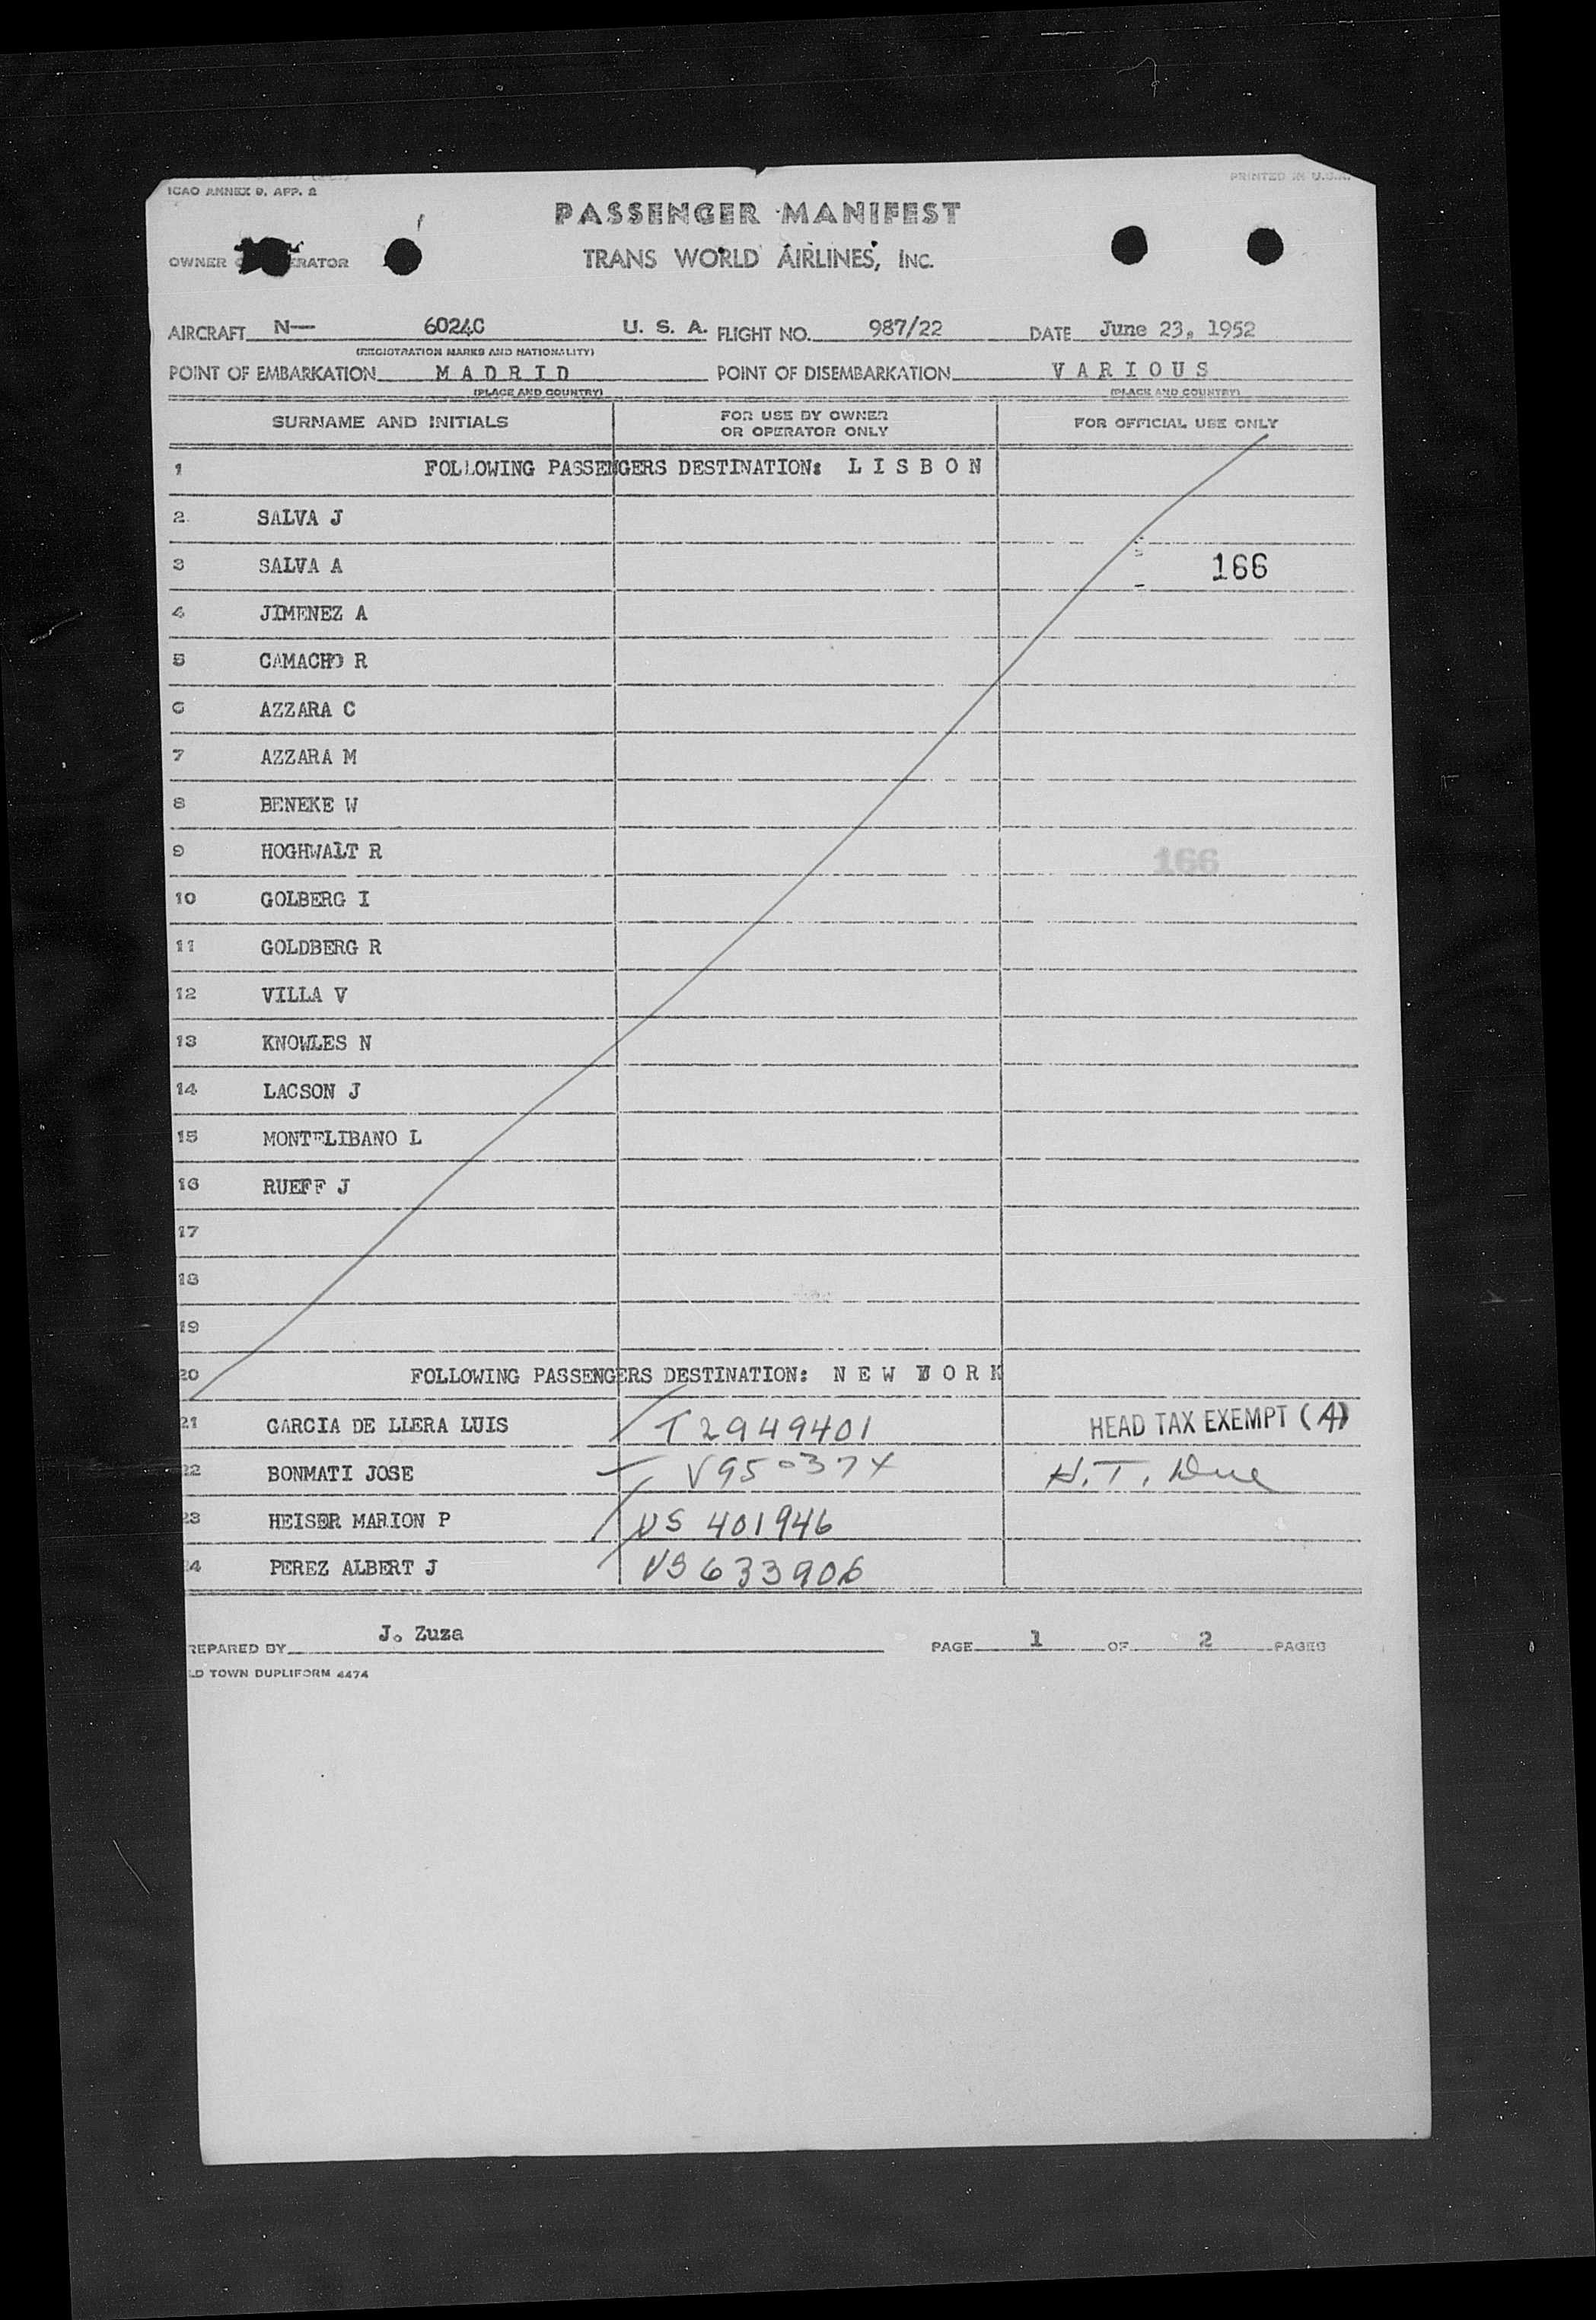 ICAO ANNEX 9, APP. 2
PRINTED IN U.S.A.
PASSENGER MANIFEST
OWNER ERATOR
TRANS WORLD AIRLINES, INC.
AIRCRAFT N— 6024C U. S. A. FLIGHT NO. 987/22 DATE June 23, 1952
(REGISTRATION MARKS AND NATIONALITY)
POINT OF EMBARKATION M A D R I D POINT OF DISEMBARKATION V A R I O U S
(PLACE AND COUNTRY) (PLACE AND COUNTRY)
SURNAME AND INITIALS FOR USE BY OWNER OR OPERATOR ONLY FOR OFFICIAL USE ONLY
1 FOLLOWING PASSENGERS DESTINATION: L I S B O N
2 SALVA J
3 SALVA A 166
4 JIMENEZ A
5 CAMACHO R
6 AZZARA C
7 AZZARA M
8 BENEKE W
9 HOGHWALT R 166
10 GOLBERG I
11 GOLDBERG R
12 VILLA V
13 KNOWLES N
14 LACSON J
15 MONTELIBANO L
16 RUEFF J
17
18
19
20 FOLLOWING PASSENGERS DESTINATION: N E W Y O R K
21 GARCIA DE LLERA LUIS T2949401 HEAD TAX EXEMPT (A)
22 BONMATI JOSE V950374 H.T. Due
23 HEISER MARION P US 401946
24 PEREZ ALBERT J US 633906
REPARED BY J. Zuza PAGE 1 OF 2 PAGES
LD TOWN DUPLIFORM 4474